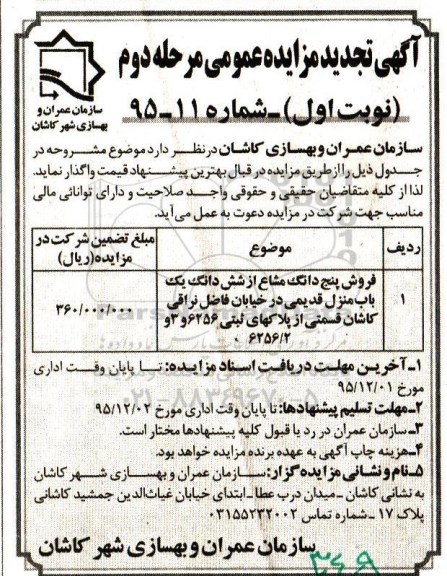 آگهی تجدید مزایده عمومی مرحله دوم
(نوبت اول) - شماره ۱۱-۹۵
سازمان عمران و
بهسازی شهر کاشان
سازمان عمران و بهسازی کاشان در نظر دارد موضوع مشروحه در
جدول ذیل را از طریق مزایده در قبال بهترین پیشنهاد قیمت واگذار نماید.
لذا از کلیه متقاضیان حقیقی و حقوقی واجد صلاحیت و دارای توانائی مالی
مناسب جهت شرکت در مزایده دعوت به عمل می آید.
ردیف | موضوع | مبلغ تضمین شرکت در مزایده (ریال)
۱ | فروش پنج دانگ مشاع از شش دانگ یک | ۳۶۰/۰۰۰/۰۰۰
باب منزل قدیمی در خیابان فاضل نراقی
کاشان قسمتی از پلاکهای ثبتی ۶۲۵۶ و ۳ و
۶۲۵۶/۲
۱-آخرین مهلت دریافت اسناد مزایده: تا پایان وقت اداری
مورخ ۹۵/۱۲/۰۱
۲-مهلت تسلیم پیشنهادها: تا پایان وقت اداری مورخ ۹۵/۱۲/۰۲
۳-سازمان عمران در رد یا قبول کلیه پیشنهادها مختار است.
۴-هزینه چاپ آگهی به عهده برنده مزایده خواهد بود.
۵-نام و نشانی مزایده گزار: سازمان عمران و بهسازی شهر کاشان
به نشانی کاشان - میدان درب عطا - ابتدای خیابان غیاث‌الدین جمشید کاشانی
پلاک ۱۷ - شماره تماس ۰۳۱۵۵۲۳۲۰۰۲
سازمان عمران و بهسازی شهر کاشان
۳۶۹
۰۲۱-۸۸۳۴۹۶۷۰-۵